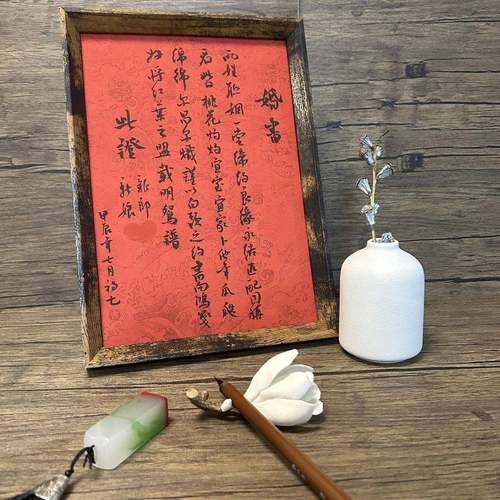 婚書
兩姓聯姻一堂締約良緣永結匹配同稱
看此日桃花灼灼宜室宜家卜他年瓜瓞
綿綿爾昌爾熾謹以白頭之約書向鴻箋
好將紅葉之盟載明鴛譜
此證
新郎
新娘
甲辰年七月初七